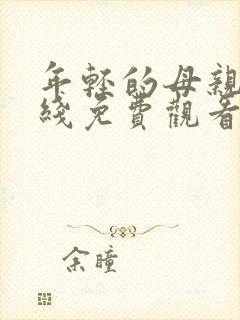 年轻的母亲
綫免費觀看
余瞳